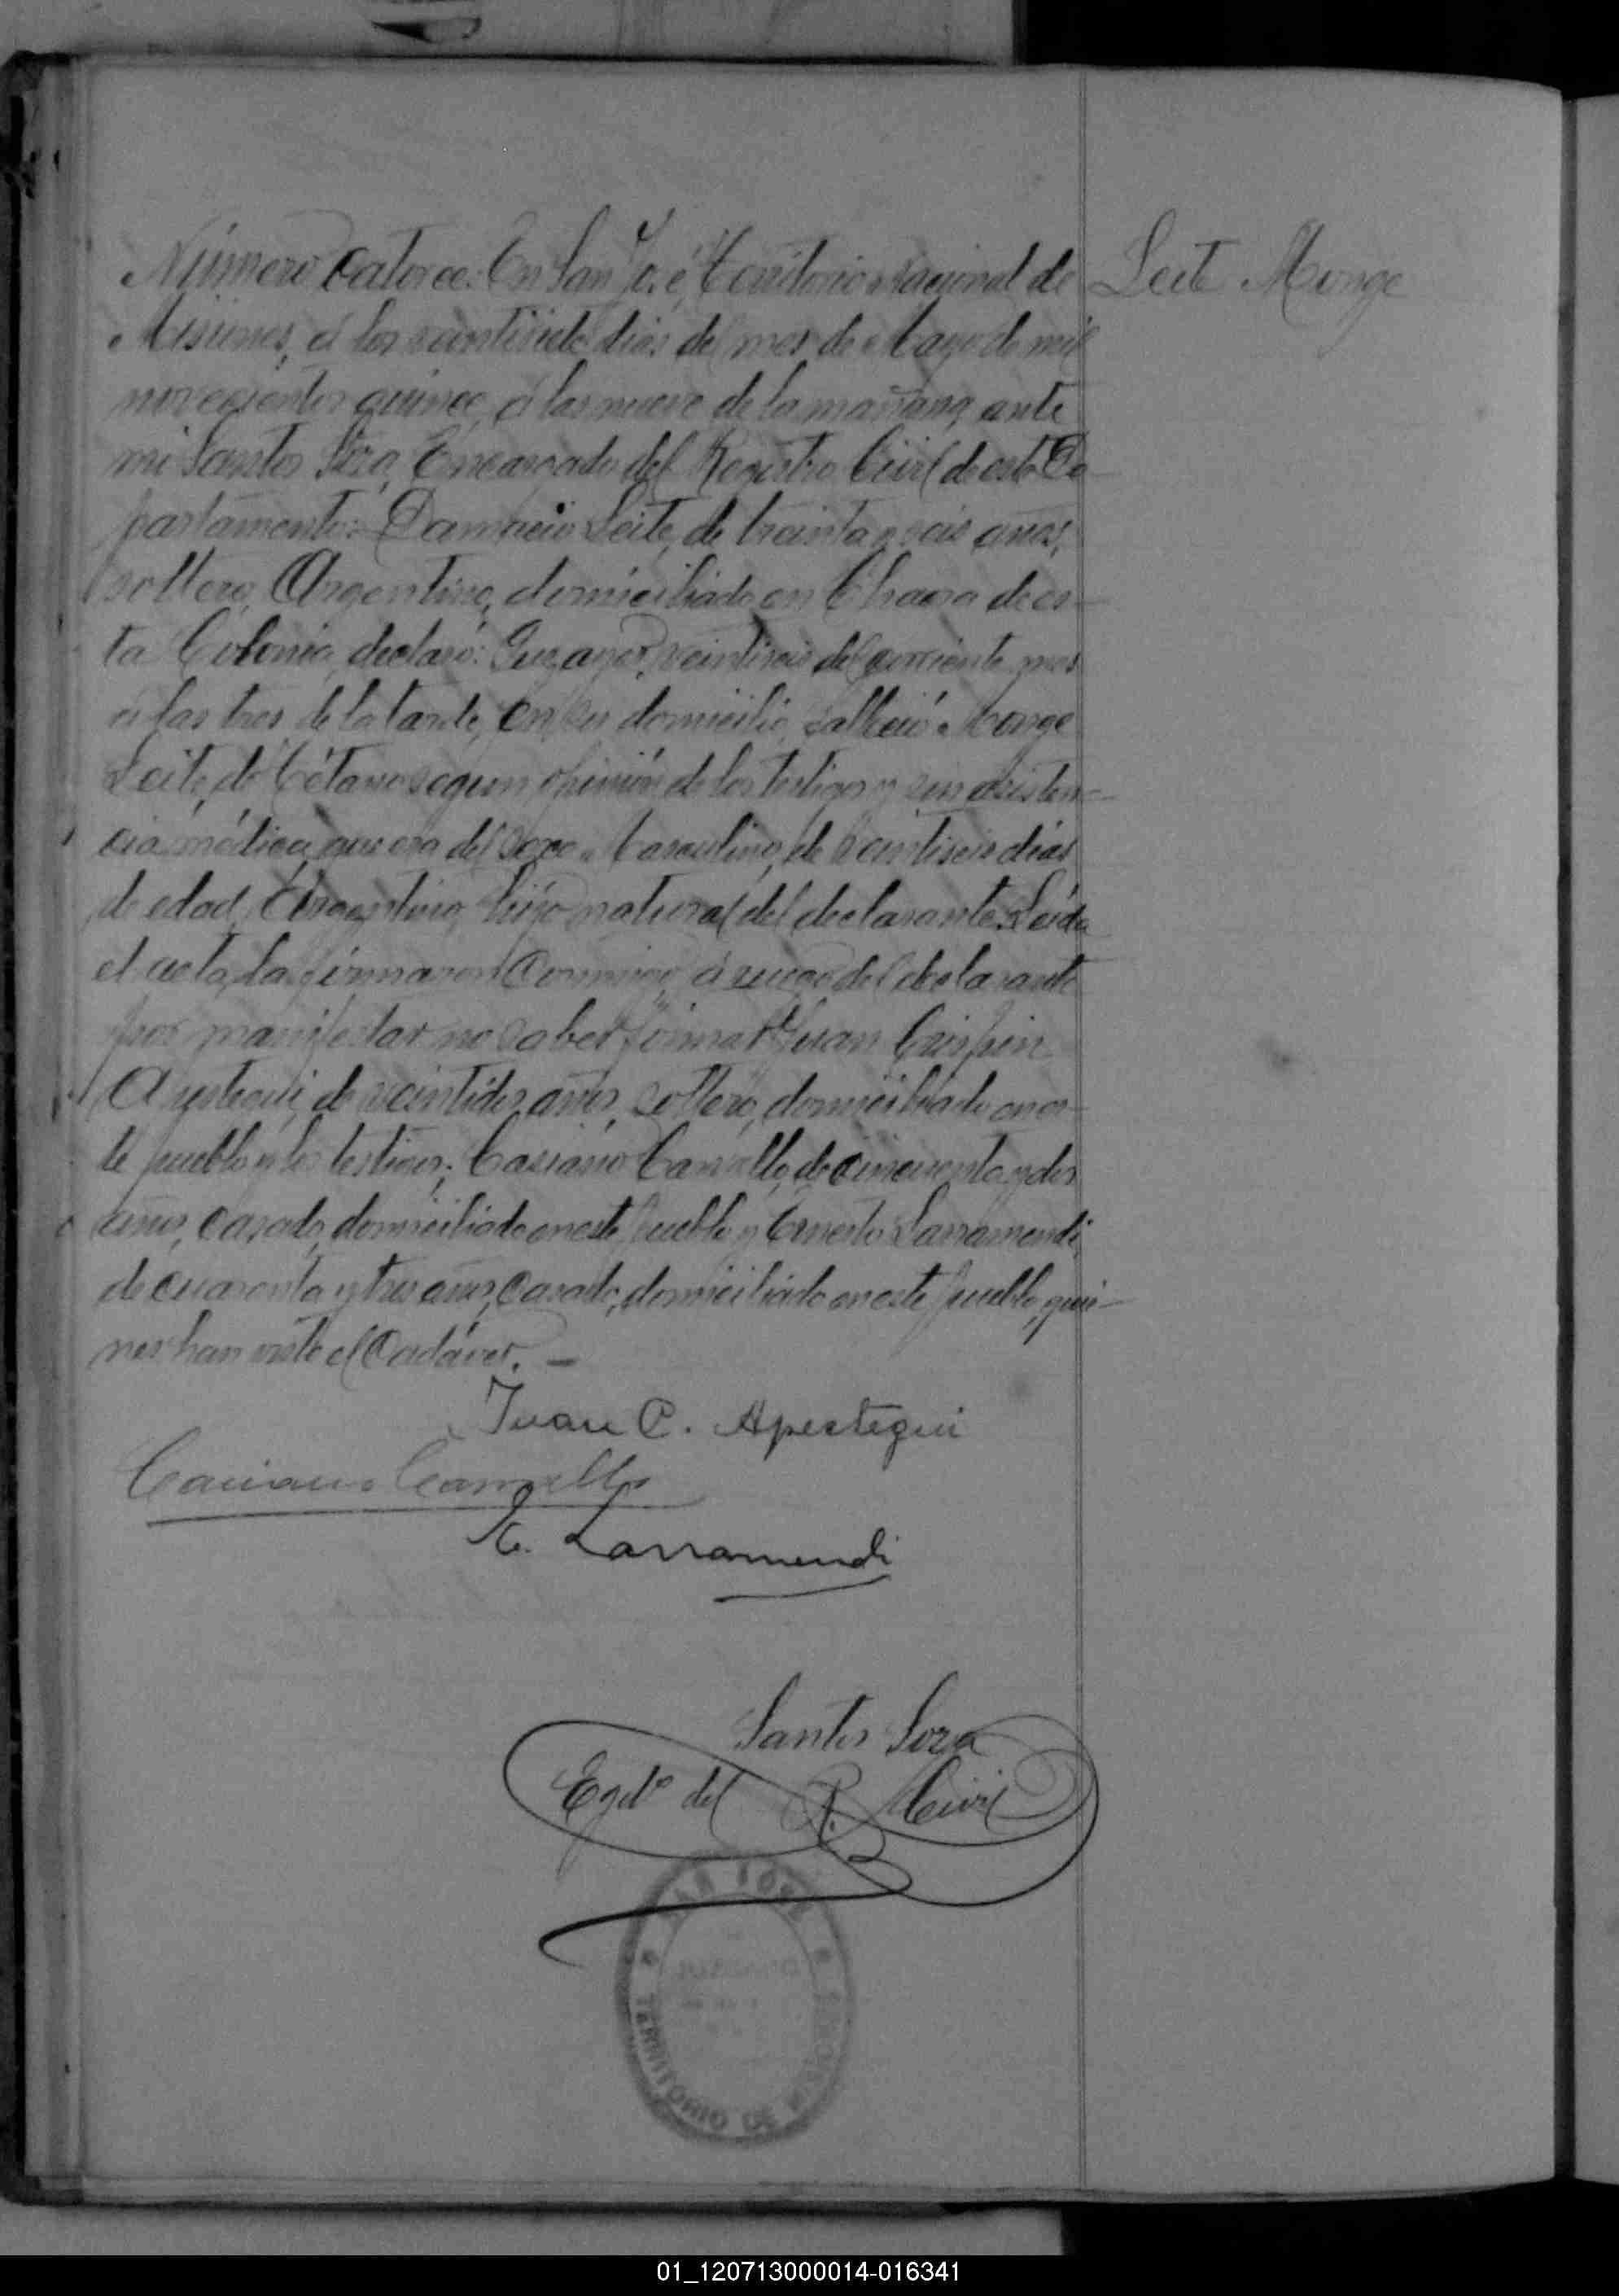 Número Catorce: En San José, Territorio Nacional de
Leite Monge
Misiones, á los veintisiete dias del mes de Mayo de mil
novecientos quince, á las nueve de la mañana, ante
mi Santos Soza, Encargado del Registro Civil de este De
partamento: Damacio Leite, de treinta y seis años,
soltero, Argentino, domiciliado en Chacra de es-
ta Colonia, declaró: Que ayer, veintiseis del corriente mes
á las tres de la tarde, en su domicilio, falleció Monge
Leite, de Tétano segun opinión de los testigos y sin asisten-
cia médica, que era del sexo Masculino, de veintiseis dias
de edad, Argentino, hijo natural del declarante. Leida
el acta, la firmaron Conmigo, á ruego del declarante
por manifestar no saber firmar Juan Crispin
Apestegui, de veintidos años, soltero, domiciliado en es-
te pueblo y los testigos; Casiano Carvallo, de cincuenta y dos
años, casado, domiciliado en este pueblo y Ernesto Larramendi,
de cuarenta y tres años, Casado, domiciliado en este pueblo, quie-
nes han visto el Cadáver. -
Juan C. Apestegui
Casiano Carvallo
E. Larramendi
Santos Soza
Egdo del R. Civil
SAN JOSE
TERRITORIO DE MISIONES
01_120713000014-016341